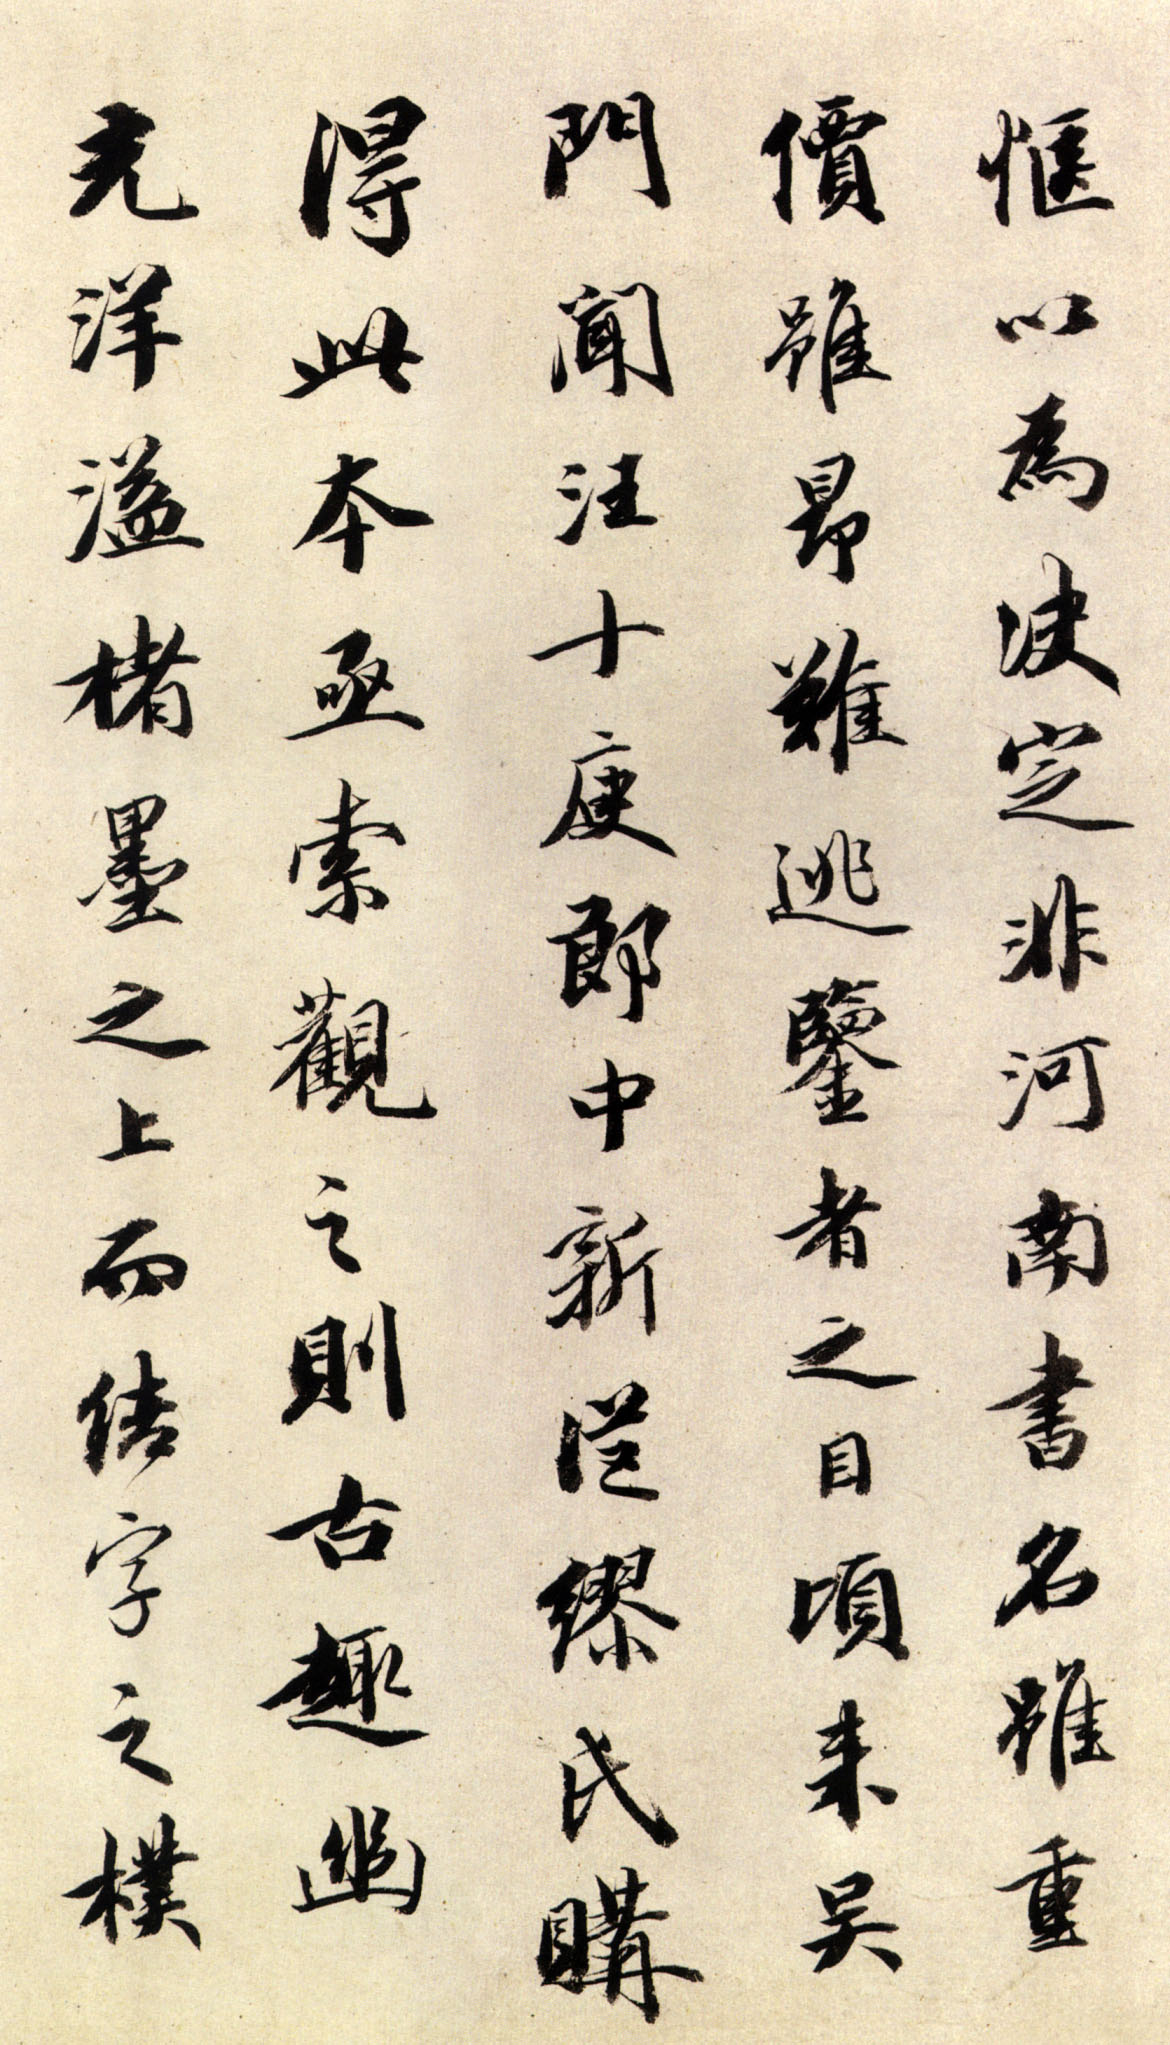 愜以為決定非河南書名雖重
價雖昂難逃鑒者之目頃来吴
門聞汪十庚郎中新從繆氏購
得此本亟索觀之則古趣幽
光洋溢楮墨之上而結字之樸